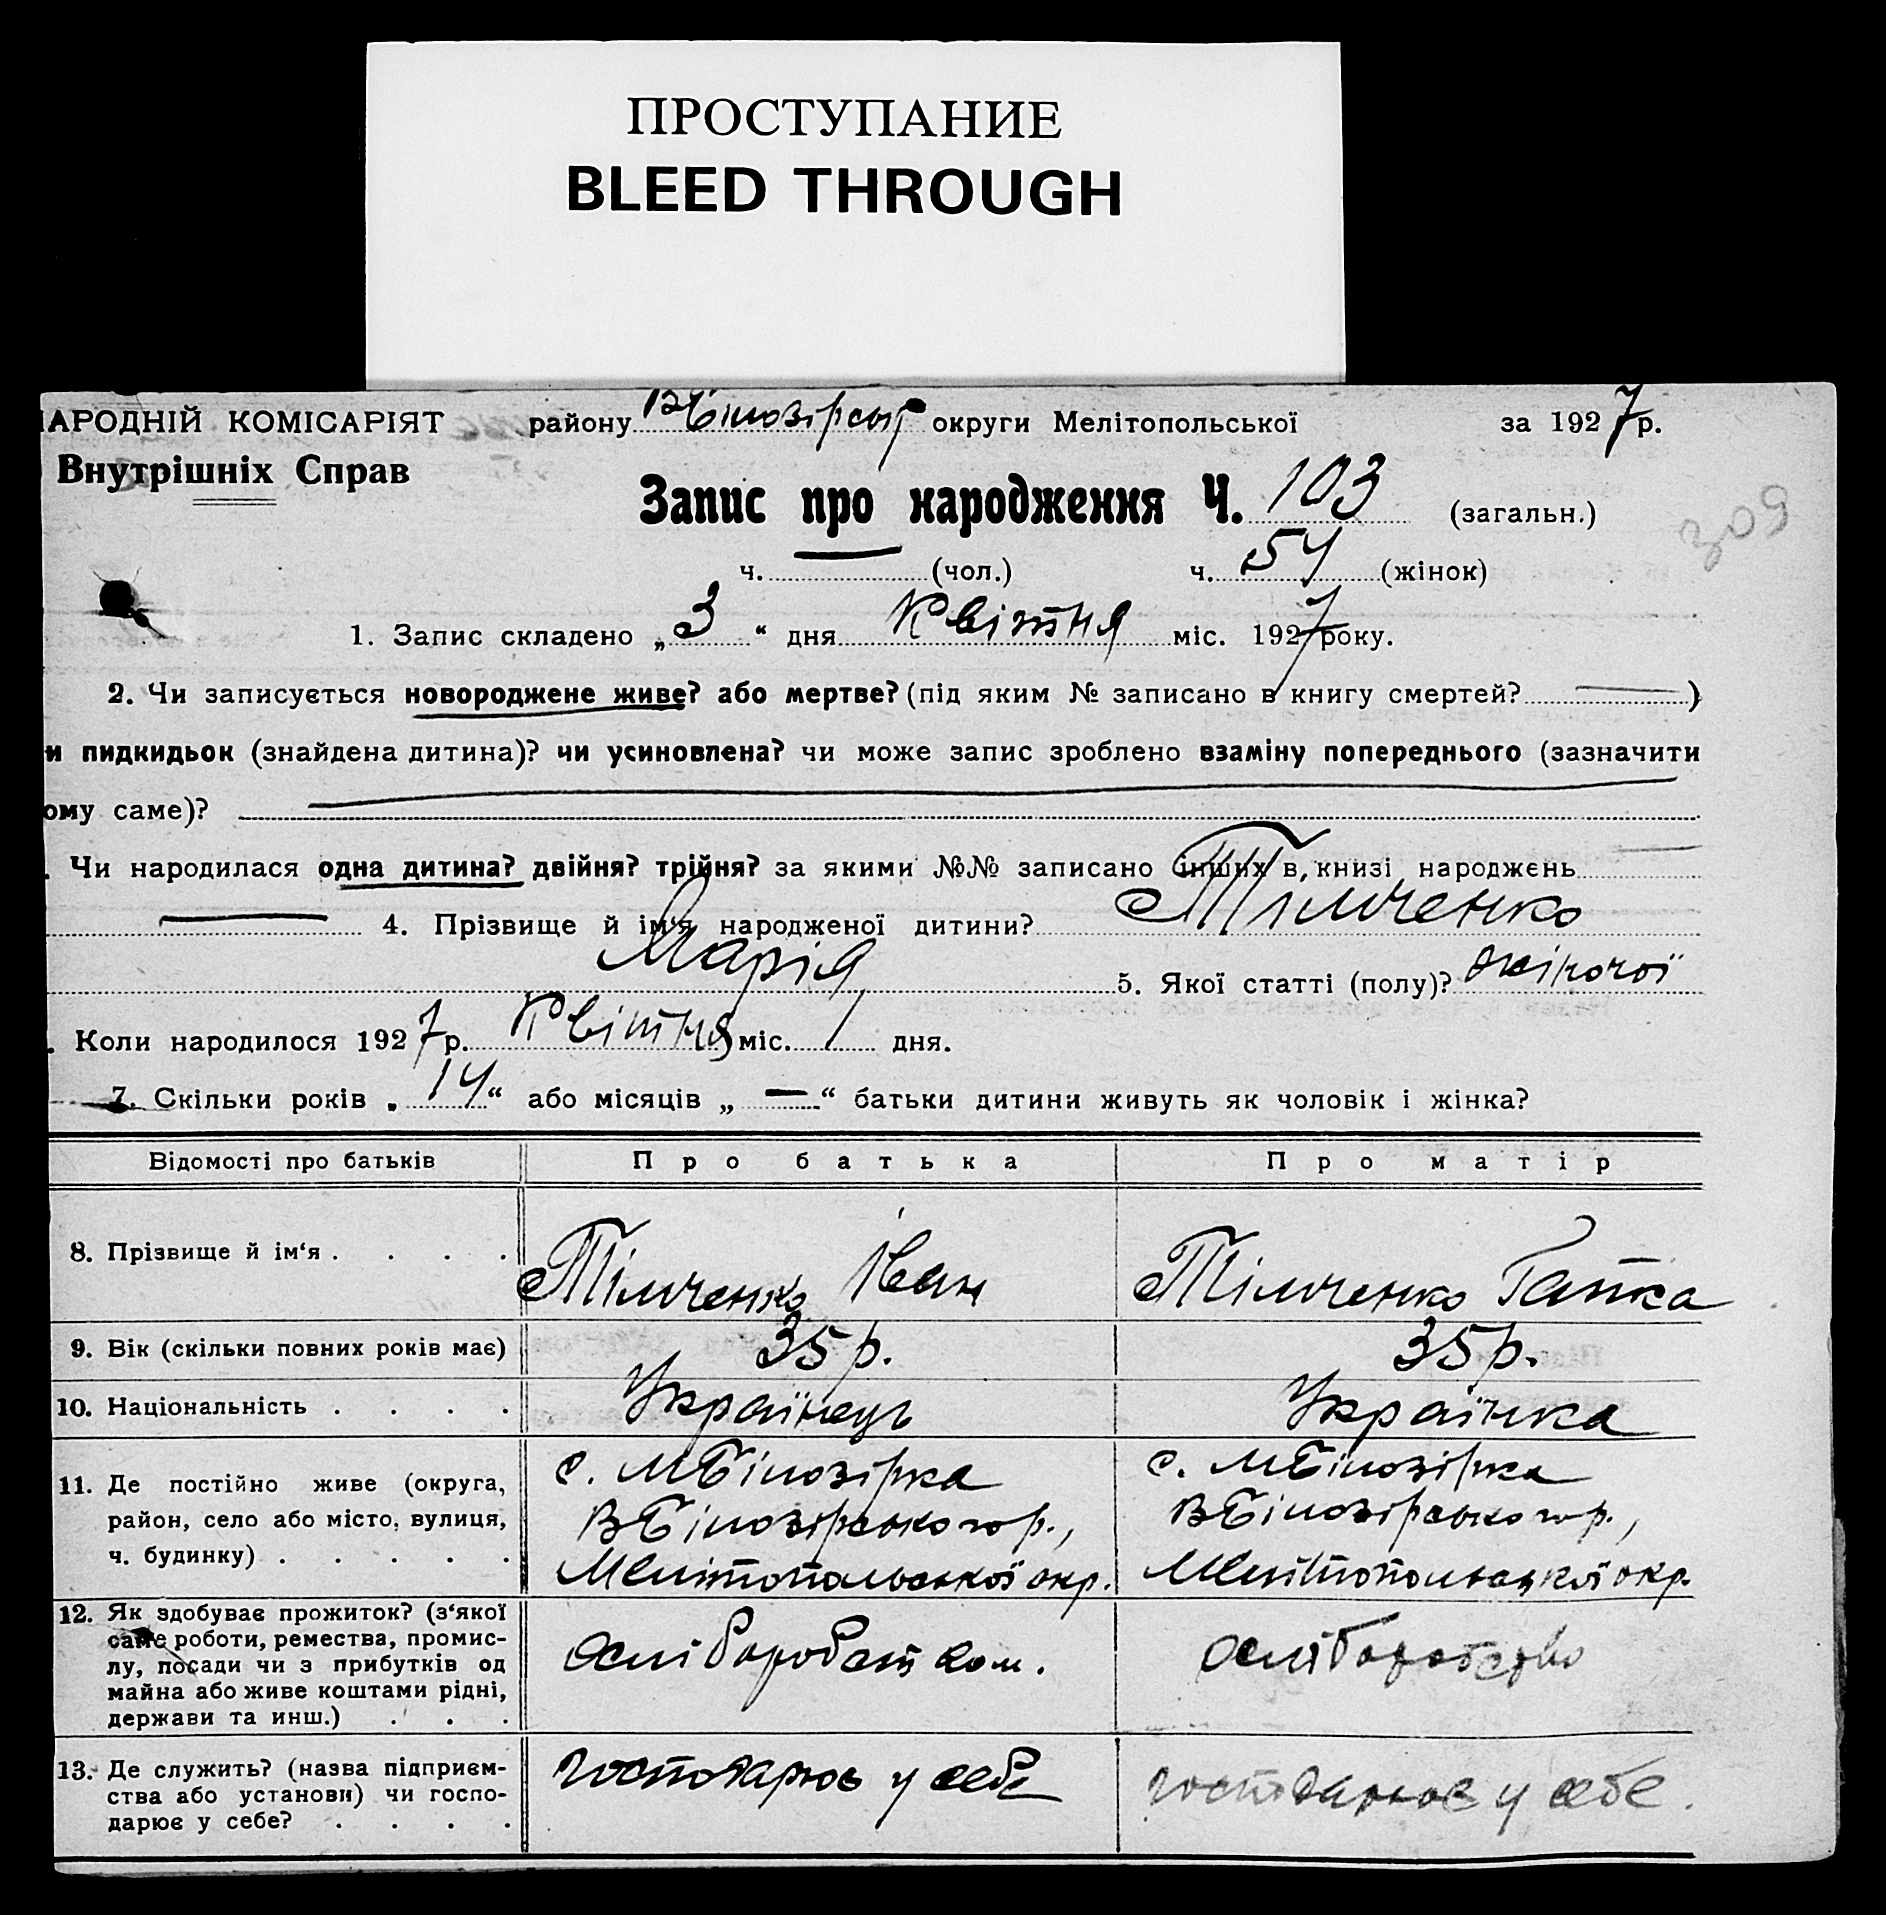 ПРОСТУПАНИЕ
BLEED THROUGH
АРОДНІЙ КОМІСАРІЯТ району округи Мелітопольської за 1927 р.
Внутрішніх Справ
Запис про народження Ч. 103 (загальн.)
309
ч. (чол.) ч. 54 (жінок)
1. Запис складено „3“ дня Квітня міс. 1927 року.
2. Чи записується новороджене живе? або мертве? (під яким № записано в книгу смертей? )
и пидкидьок (знайдена дитина)? чи усиновлена? чи може запис зроблено взаміну попереднього (зазначити
ому саме)?
. Чи народилася одна дитина? двійня? трійня? за якими №№ записано інших в книзі народжень
4. Прізвище й ім‘я народженої дитини? Тімченко
Марія 5. Якої статті (полу)? жіночої
. Коли народилося 1927 р. Квітня міс. 1 дня.
7. Скільки років „14“ або місяців „—“ батьки дитини живуть як чоловік і жінка?
Відомості про батьків Про батька Про матір
8. Прізвище й ім‘я . . . . Тімченко Іван Тімченко Гапка
9. Вік (скільки повних років має) 35 р. 35 р.
10. Національність . . . . Українець Українка
11. Де постійно живе (округа, с. МБілозірка с. МБілозірка
район, село або місто, вулиця, ВБілозірського р., ВБілозірського р.,
ч. будинку) . . . . . Мелітопольської окр. Мелітопольської окр.
12. Як здобуває прожиток? (з‘якої
саме роботи, ремества, промис-
лу, посади чи з прибутків од
майна або живе коштами рідні,
держави та инш.) . . .
13. Де служить? (назва підприєм- господарює у себе господарює у себе.
ства або установи) чи госпо-
дарює у себе? . . . .